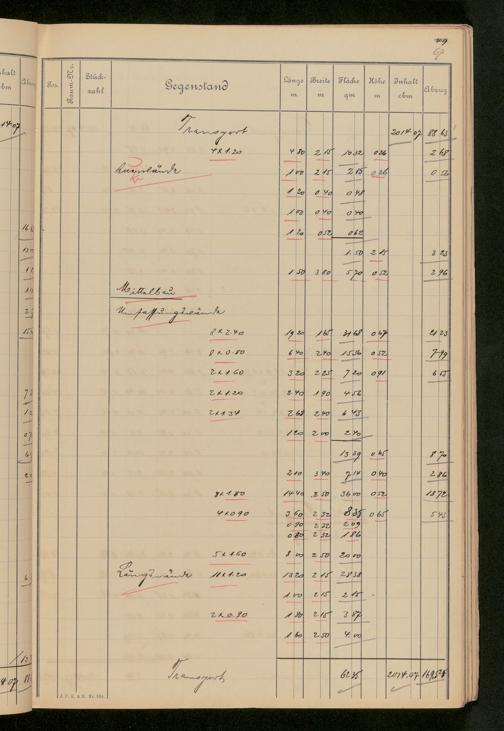 67
Pos. Raum-No. Stück-zahl Gegenstand Länge m Breite m Fläche qm Höhe m Inhalt cbm Abzug
Transport 2014.07
4 x 1.20 4 80 2 15 10.32 0 26 2 68
Querwände 1 00 2 15 2 15 0 26 0 56
1 20 0 40 0 48
1 00 0 40 0.40
1 20 0 52 0 62
1.50 2 15 3 23
1 50 3 80 5 70 0 52 2 96
Mittelbau
Umfassungswände
8 x 2.40 19 20 1 65 31 68 0 67 21 23
8 x 0.80 6 40 2 40 15 36 0 52 7 99
2 x 1.60 3 20 2 25 7 20 0 91 6 55
2 x 1.20 2 40 1 90 4 56
2 x 1.34 2 68 2 40 6 43
1 20 2 00 2 40
13 39 0 65 8 70
2 10 3 40 7 14 0 40 2 86
8 x 1.80 14 40 2 50 36 00 0 52 18 72
4 x 0.90 3 60 2 32 8 35 0 65 5 43
0 90 2 32 2 09
0 80 2 32 1 86
5 x 1.60 8 00 2 50 20 00
Längswände 11 x 1.20 13 20 2 15 28 38
1 00 2 15 2 15
2 x 0.90 1 80 2 15 3 87
1 60 2 50 4.00
Transport 62 35 2014.07